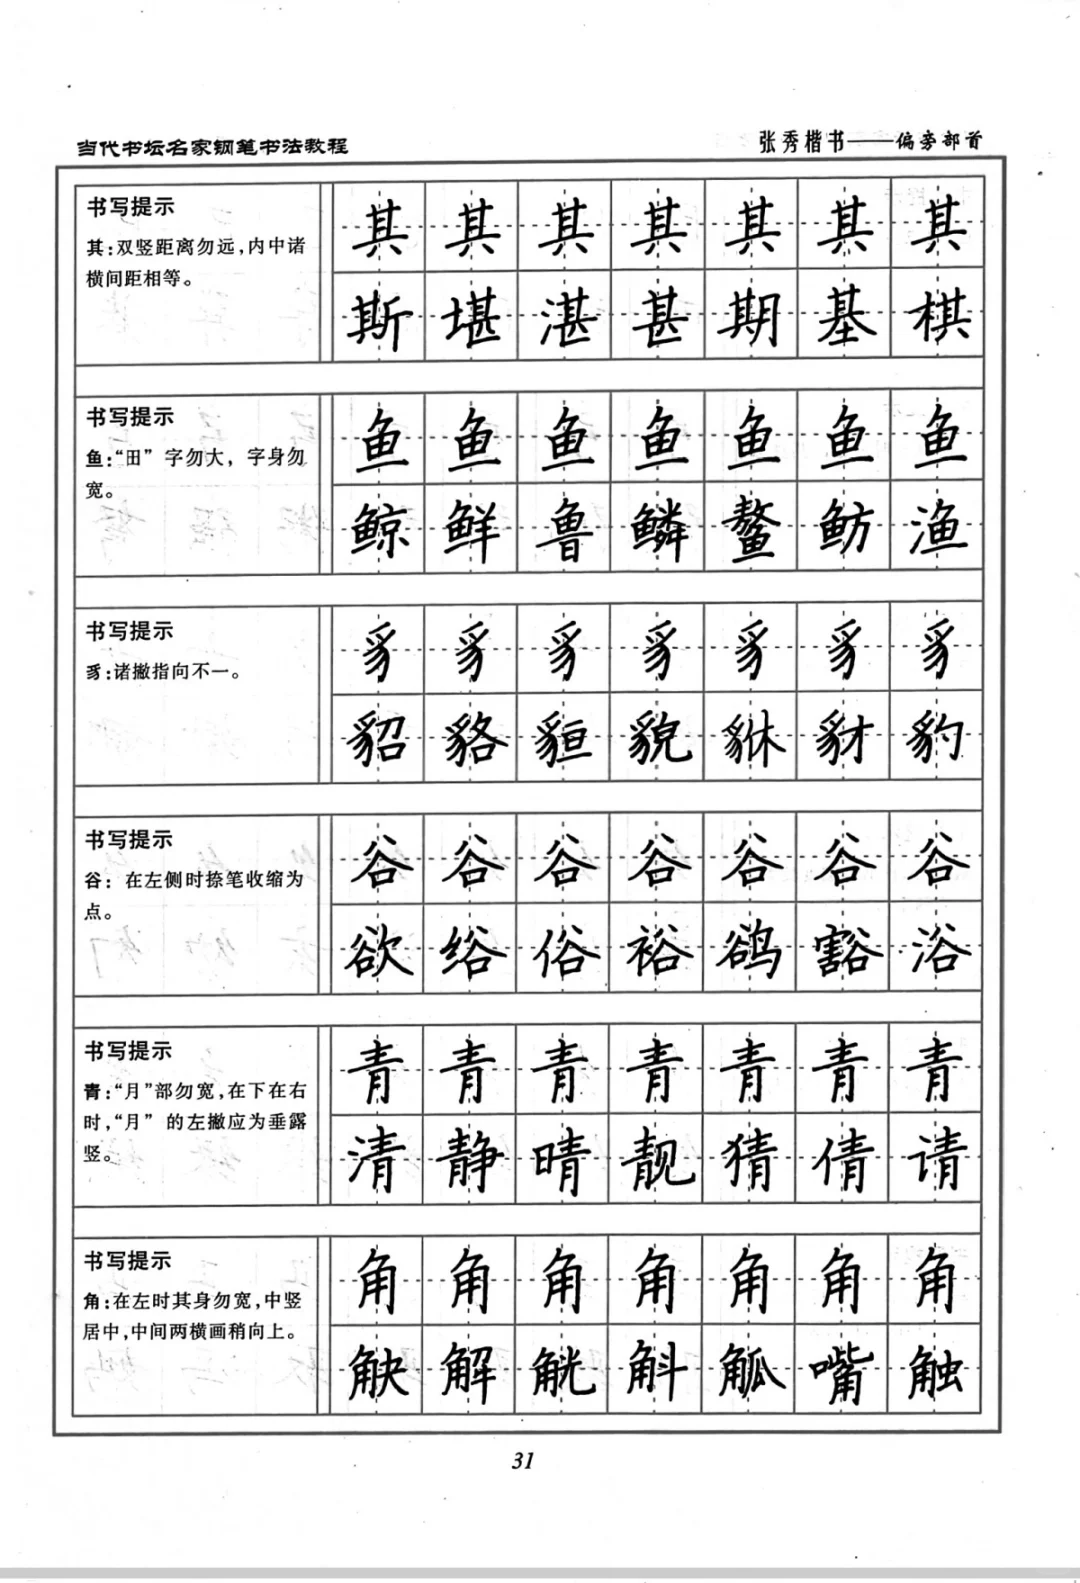 当代书坛名家钢笔书法教程
张秀楷书——偏旁部首
书写提示
其:双竖距离勿远,内中诸
横间距相等。
其其其其其其其
斯堪湛甚期基棋
书写提示
鱼:“田”字勿大，字身勿
宽。
鱼鱼鱼鱼鱼鱼鱼
鲸鲜鲁鳞鳌鲂渔
书写提示
豸:诸撇指向不一。
豸豸豸豸豸豸豸
貂貉貆貌貅豺豹
书写提示
谷：在左侧时捺笔收缩为
点。
谷谷谷谷谷谷谷
欲绤俗裕鹆豁浴
书写提示
青:“月”部勿宽,在下在右
时,“月”的左撇应为垂露
竖。
青青青青青青青
清静晴靓猜倩请
书写提示
角:在左时其身勿宽,中竖
居中,中间两横画稍向上。
角角角角角角角
觖解觥斛觚嘴触
31